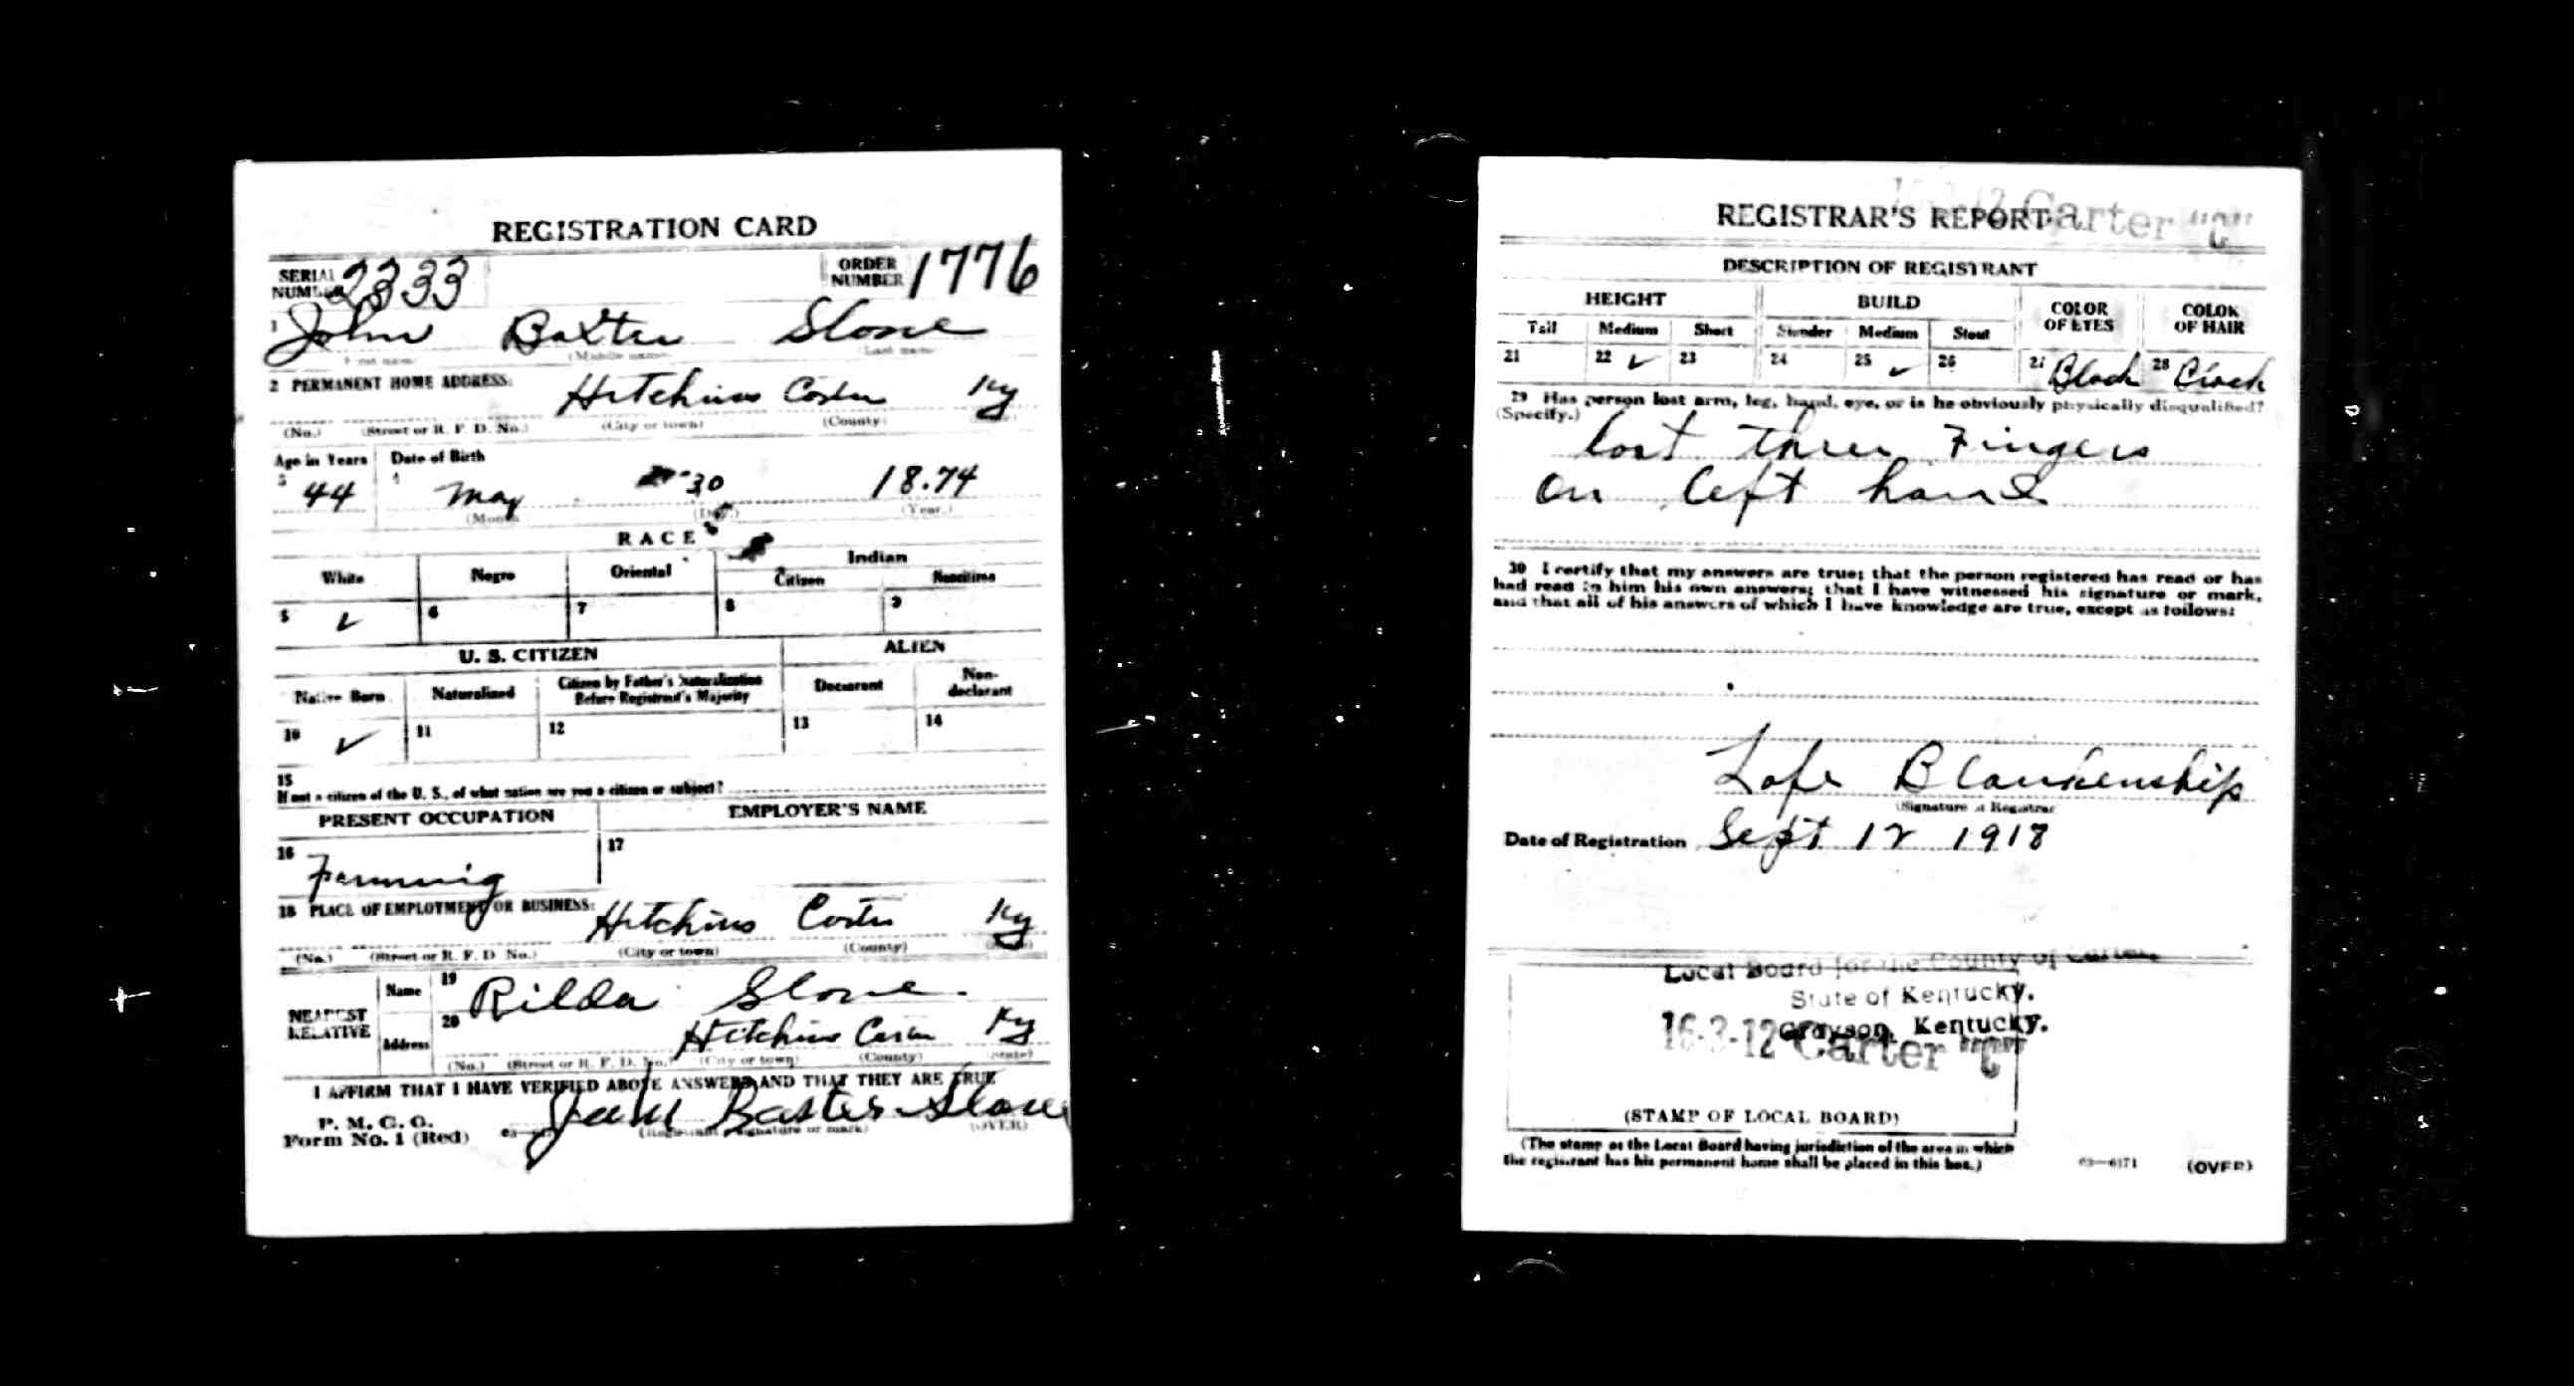 REGISTRATION CARD
SERIAL NUMBER 2333
ORDER NUMBER 1776
1 John Baxter Slone
(First name) (Middle name) (Last name)
2 PERMANENT HOME ADDRESS:
Hitchins Carter Ky
(No.) (Street or R. F. D. No.) (City or town) (County) (State)
Age in Years Date of Birth
3 44 4 May 30 18.74
(Month) (Day.) (Year.)
RACE
White Negro Oriental Indian
Citizen Noncitizen
5 ✓ 6 7 8 9
U. S. CITIZEN ALIEN
Native Born Naturalized Citizen by Father's Naturalization Before Registrant's Majority Declarant Non-declarant
10 ✓ 11 12 13 14
15
If not a citizen of the U. S., of what nation are you a citizen or subject?
PRESENT OCCUPATION EMPLOYER'S NAME
16 Farming 17
18 PLACE OF EMPLOYMENT OR BUSINESS:
Hitchins Carter Ky
(No.) (Street or R. F. D. No.) (City or town) (County) (State)
NEAREST RELATIVE
Name 19 Rilda Slone
Address 20 Hitchins Carter Ky
(No.) (Street or R. F. D. No.) (City or town) (County) (State)
I AFFIRM THAT I HAVE VERIFIED ABOVE ANSWERS AND THAT THEY ARE TRUE
P. M. G. O.
Form No. 1 (Red)
John Baxter Slone
(Registrant's signature or mark) (OVER)
REGISTRAR'S REPORT
Carter "C"
DESCRIPTION OF REGISTRANT
HEIGHT BUILD COLOR OF EYES COLOR OF HAIR
Tall Medium Short Slender Medium Stout
21 22 ✓ 23 24 25 ✓ 26 27 Black 28 Black
29 Has person lost arm, leg, hand, eye, or is he obviously physically disqualified?
(Specify.)
lost three Fingers
on left hand
30 I certify that my answers are true; that the person registered has read or has
had read to him his own answers; that I have witnessed his signature or mark,
and that all of his answers of which I have knowledge are true, except as follows:
Lafe Blankenship
(Signature of Registrar)
Date of Registration Sept 12 1918
Local Board for the County of Carter,
State of Kentucky.
Grayson, Kentucky.
16-3-12 Carter C
(STAMP OF LOCAL BOARD)
(The stamp of the Local Board having jurisdiction of the area in which
the registrant has his permanent home shall be placed in this box.)
03—6171 (OVER)